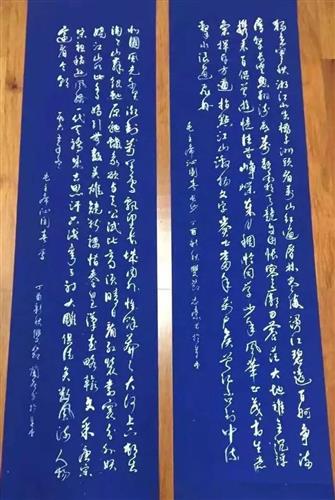 独立寒秋湘江北去橘子洲头看万山红遍层林尽染漫江碧透百舸争流
鹰击长空鱼翔浅底万类霜天竞自由怅寥廓问苍茫大地谁主沉浮
携来百侣曾游忆往昔峥嵘岁月稠恰同学少年风华正茂书生意
气挥斥方遒指点江山激扬文字粪土当年万户侯曾记否到中流
击水浪遏飞舟
毛主席沁园春长沙 丁酉初秋
北国风光千里冰封万里雪飘望长城内外惟余莽莽大河上下顿失
滔滔山舞银蛇原驰蜡象欲与天公试比高须晴日看红装素裹分外妖
娆江山如此多娇引无数英雄竞折腰惜秦皇汉武略输文采唐宗
宋祖稍逊风骚一代天骄成吉思汗只识弯弓射大雕俱往矣数风流人物
还看今朝
毛主席沁园春雪
丁酉初秋